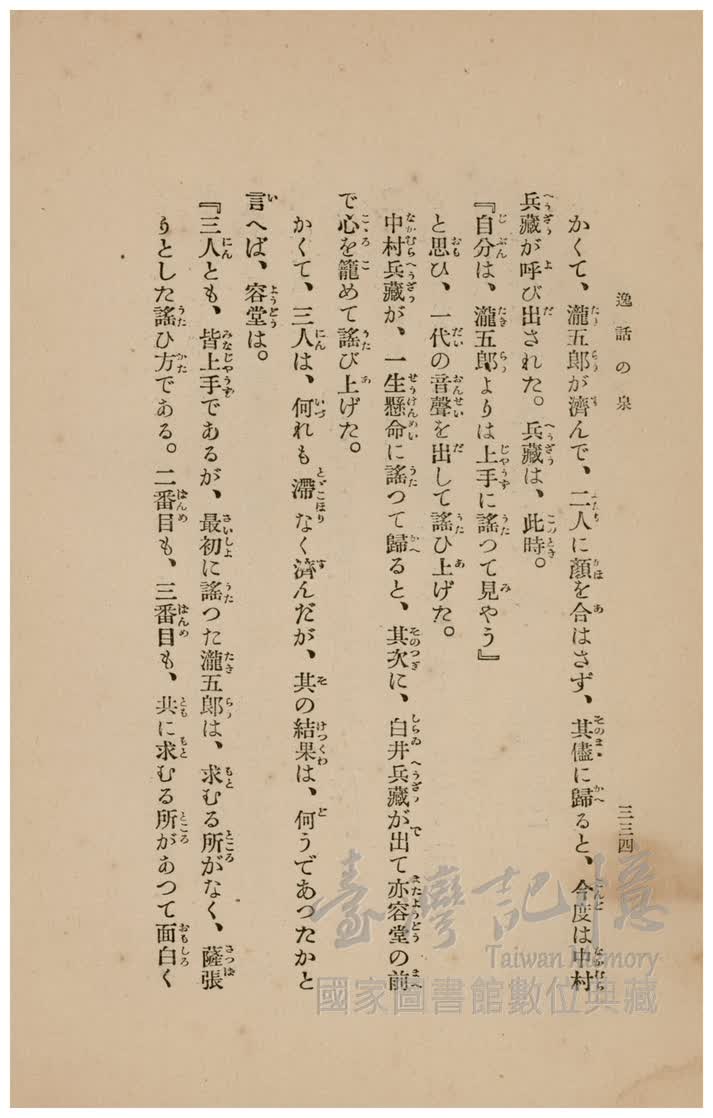 逸話の泉
三三四
かくて、瀧五郎が濟んで、二人に顔を合はさず、其儘に歸ると、今度は中村
兵藏が呼び出された。兵藏は、此時。
『自分は、瀧五郎よりは上手に謠つて見やう』
と思ひ、一代の音聲を出して謠ひ上げた。
中村兵藏が、一生懸命に謠つて歸ると、其次に、白井兵藏が出て亦容堂の前
で心を籠めて謠び上げた。
かくて、三人は、何れも滯なく濟んだが、其の結果は、何うであつたかと
言へば、容堂は。
『三人とも、皆上手であるが、最初に謠つた瀧五郎は、求むる所がなく、薩張
りとした謠ひ方である。二番目も、三番目も、共に求むる所があつて面白く
臺灣記憶
Taiwan Memory
國家圖書館數位典藏